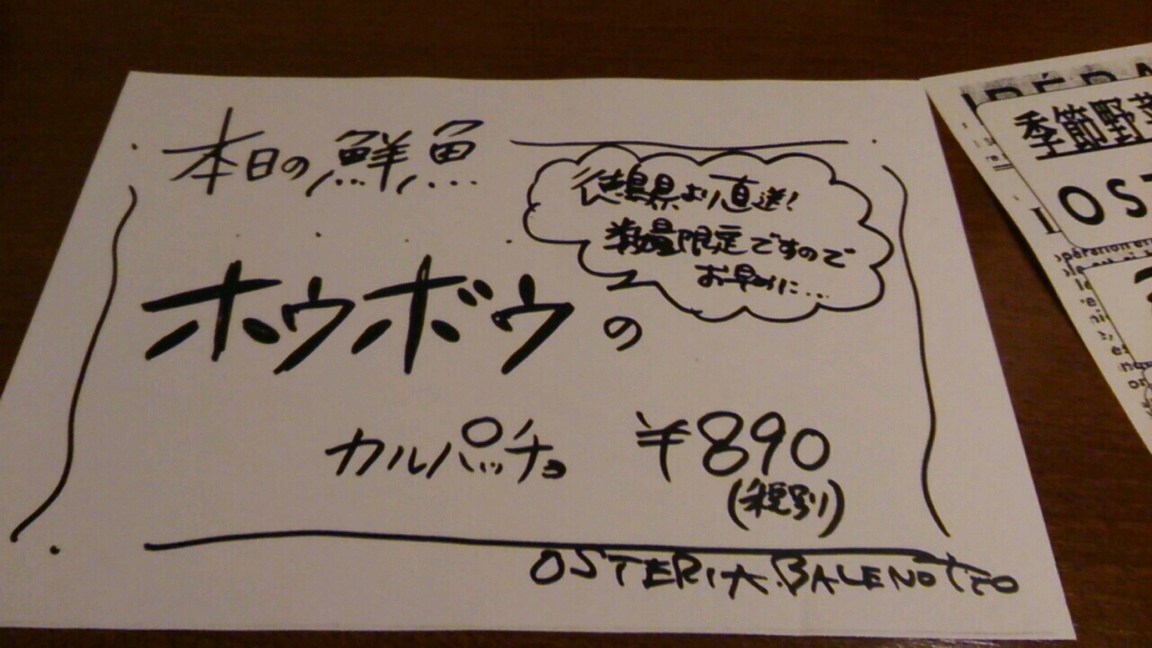 本日の鮮魚
徳島県より直送!
数量限定ですので
お早めに...
ホウボウの
カルパッチョ ¥890
(税別)
OSTERIA.BALENOTTO
季節野菜
OST